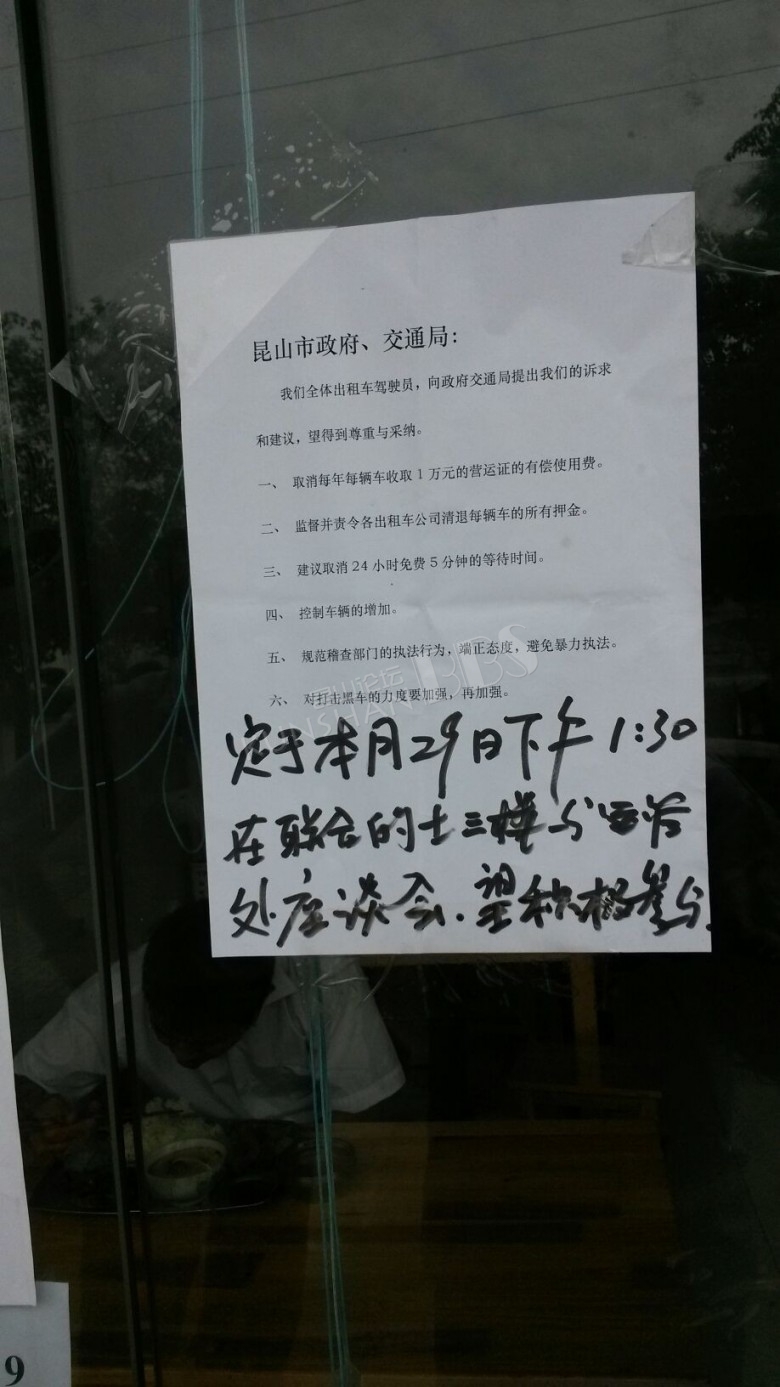 昆山市政府、交通局：
我们全体出租车驾驶员，向政府交通局提出我们的诉求
和建议，望得到尊重与采纳。
一、 取消每年每辆车收取1万元的营运证的有偿使用费。
二、 监督并责令各出租车公司清退每辆车的所有押金。
三、 建议取消24小时免费5分钟的等待时间。
四、 控制车辆的增加。
五、 规范稽查部门的执法行为，端正态度，避免暴力执法。
六、 对打击黑车的力度要加强，再加强。
定于本月29日下午1:30
在联合的士三楼与运管
处座谈会.望积极参与.
昆山论坛BBS
9